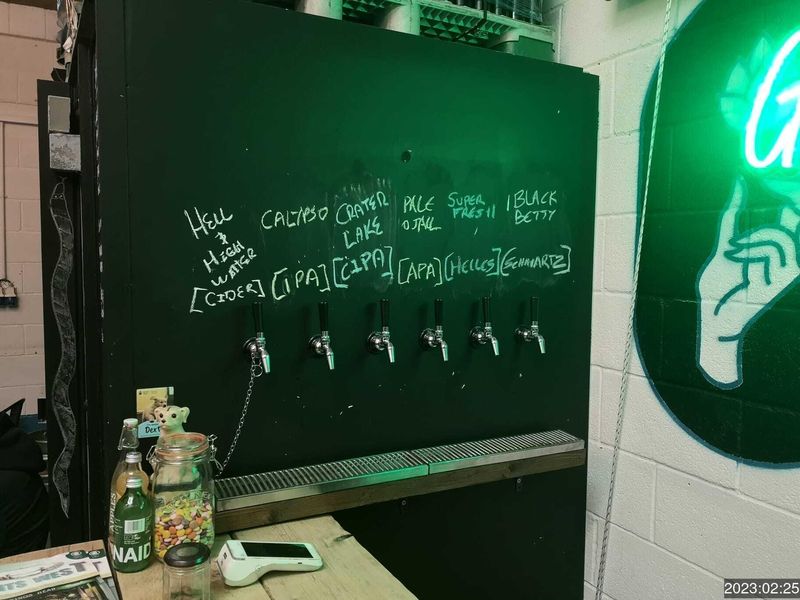 HELL
&
HIGH
WATER
[CIDER]
CALYPSO
[IPA]
CRATER
LAKE
[CIPA]
PALE
[APA]
SUPER
FRESH
[HELLES]
BLACK
BETTY
[SCHWARTZ]
Dext
NAID
TS WEST
2023:02:25